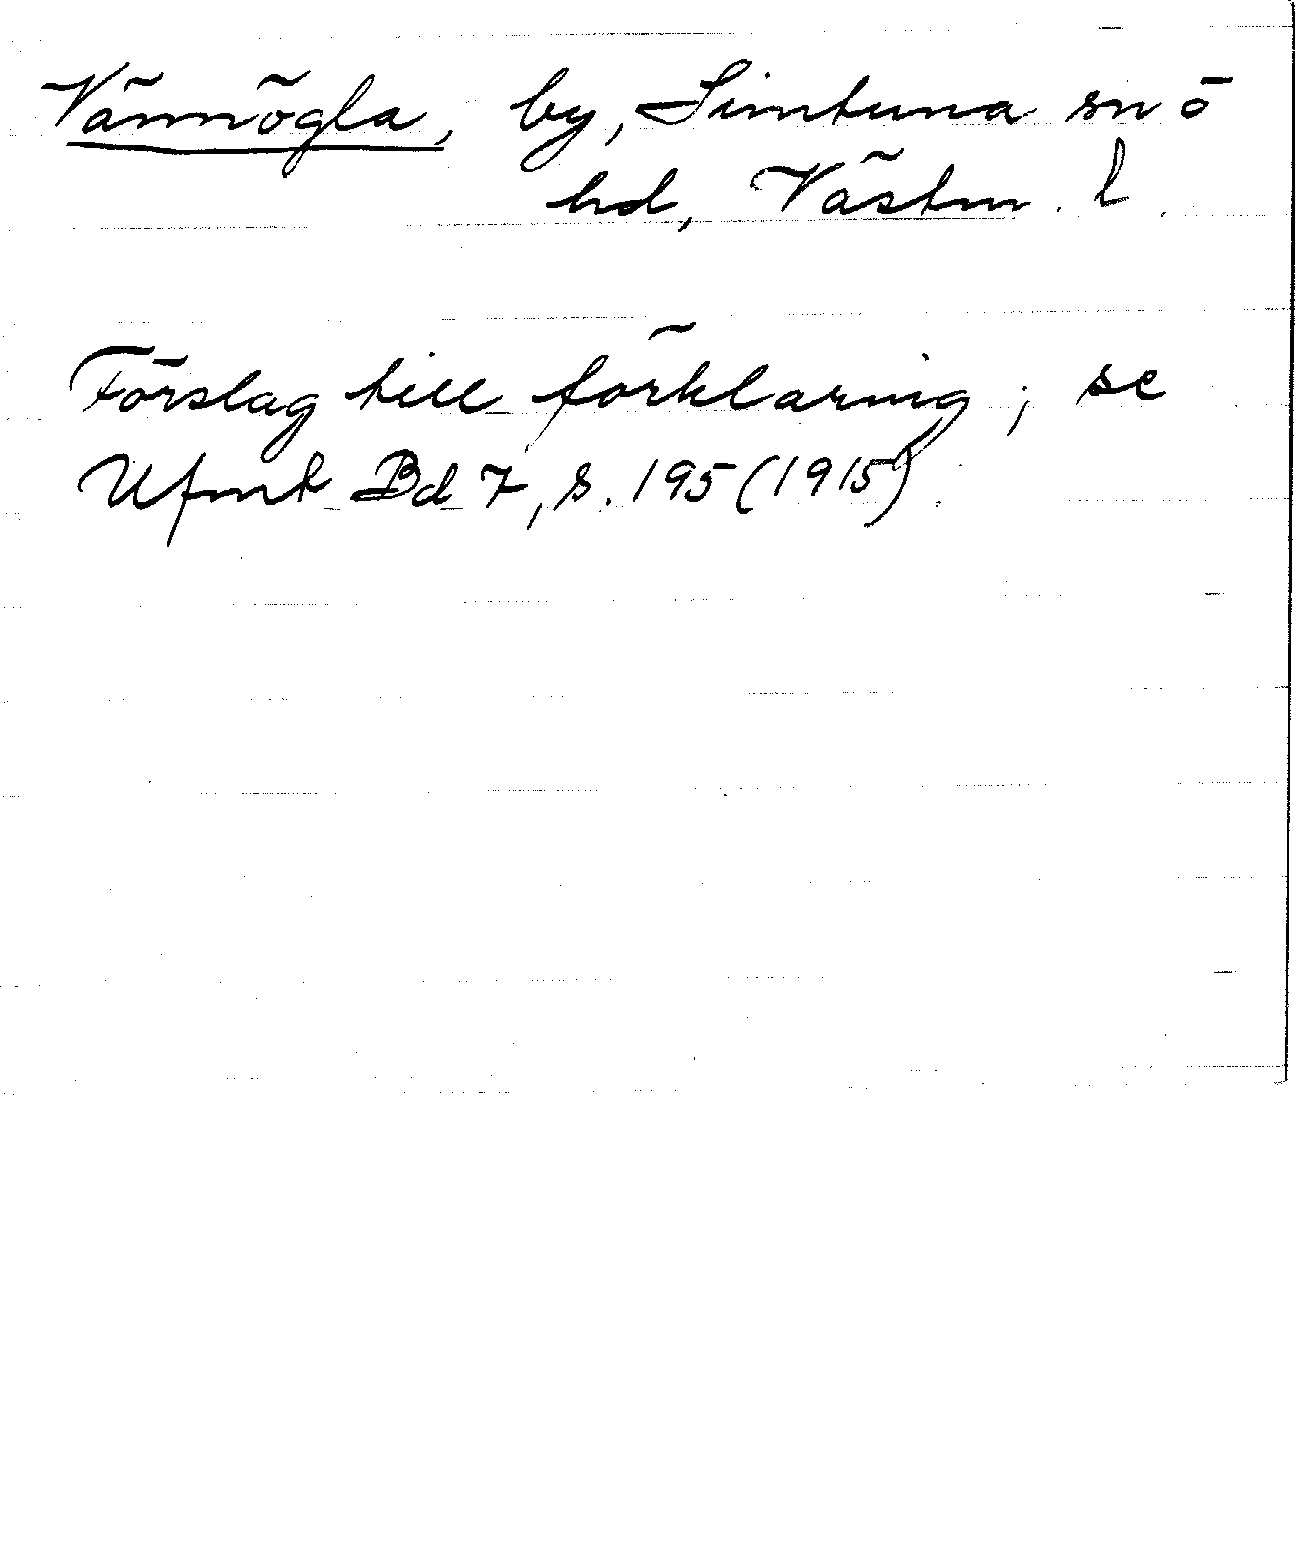 Vännögla, by, Simtuna sn ö
hd, Västm. l.
Förslag till förklaring; se
Ufmt Bd 7, s. 195 (1915).